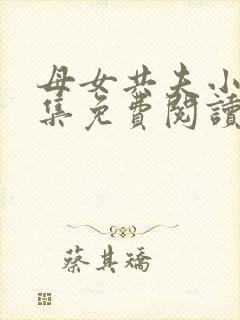 母女共夫小
集免費閱讀
蔡其矯